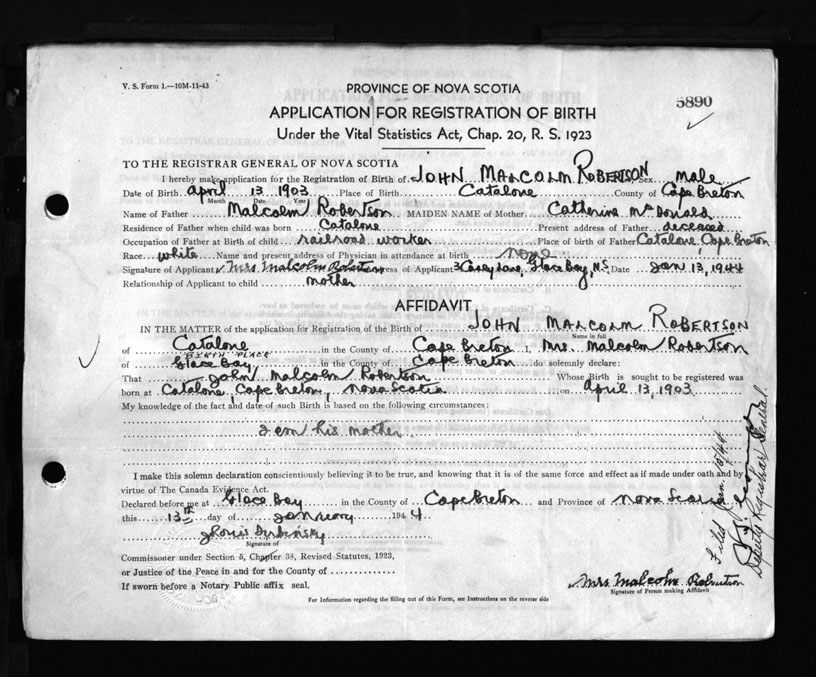 V. S. Form 1.—10M-11-43
PROVINCE OF NOVA SCOTIA
5890
APPLICATION FOR REGISTRATION OF BIRTH
Under the Vital Statistics Act, Chap. 20, R. S. 1923
TO THE REGISTRAR GENERAL OF NOVA SCOTIA
I hereby make application for the Registration of Birth of JOHN MALCOLM ROBERTSON Sex male
Date of Birth april 13 1903 Place of Birth Catalone County of Cape Breton
Month Date Year
Name of Father Malcolm Robertson MAIDEN NAME of Mother Catherine McDonald
Residence of Father when child was born Catalone Present address of Father deceased
Occupation of Father at Birth of child railroad worker Place of birth of Father Catalone, Cape Breton
Race white Name and present address of Physician in attendance at birth none
Signature of Applicant Mrs Malcolm Robertson Address of Applicant 3 Casey Lane, Glace Bay, N.S. Date Jan 13, 1944
Relationship of Applicant to child mother
AFFIDAVIT
IN THE MATTER of the application for Registration of the Birth of JOHN MALCOLM ROBERTSON
Name in full
of Catalone in the County of Cape Breton I, Mrs. Malcolm Robertson
BIRTH PLACE
of Glace Bay in the County of Cape Breton do solemnly declare:
That John Malcolm Robertson Whose Birth is sought to be registered was
born at Catalone, Cape Breton, Nova Scotia on April 13, 1903
My knowledge of the fact and date of such Birth is based on the following circumstances:
I am his mother
I make this solemn declaration conscientiously believing it to be true, and knowing that it is of the same force and effect as if made under oath and by
virtue of The Canada Evidence Act.
Declared before me at Glace Bay in the County of Cape Breton and Province of Nova Scotia
this 13th day of January 1944
Louis Dubinsky
Signature of
Commissioner under Section 5, Chapter 38, Revised Statutes, 1923,
or Justice of the Peace in and for the County of
If sworn before a Notary Public affix seal.
Mrs. Malcolm Robertson
Signature of Person making Affidavit
For Information regarding the filling out of this Form, see Instructions on the reverse side
Filed Jan. 15/44
Deputy Registrar General